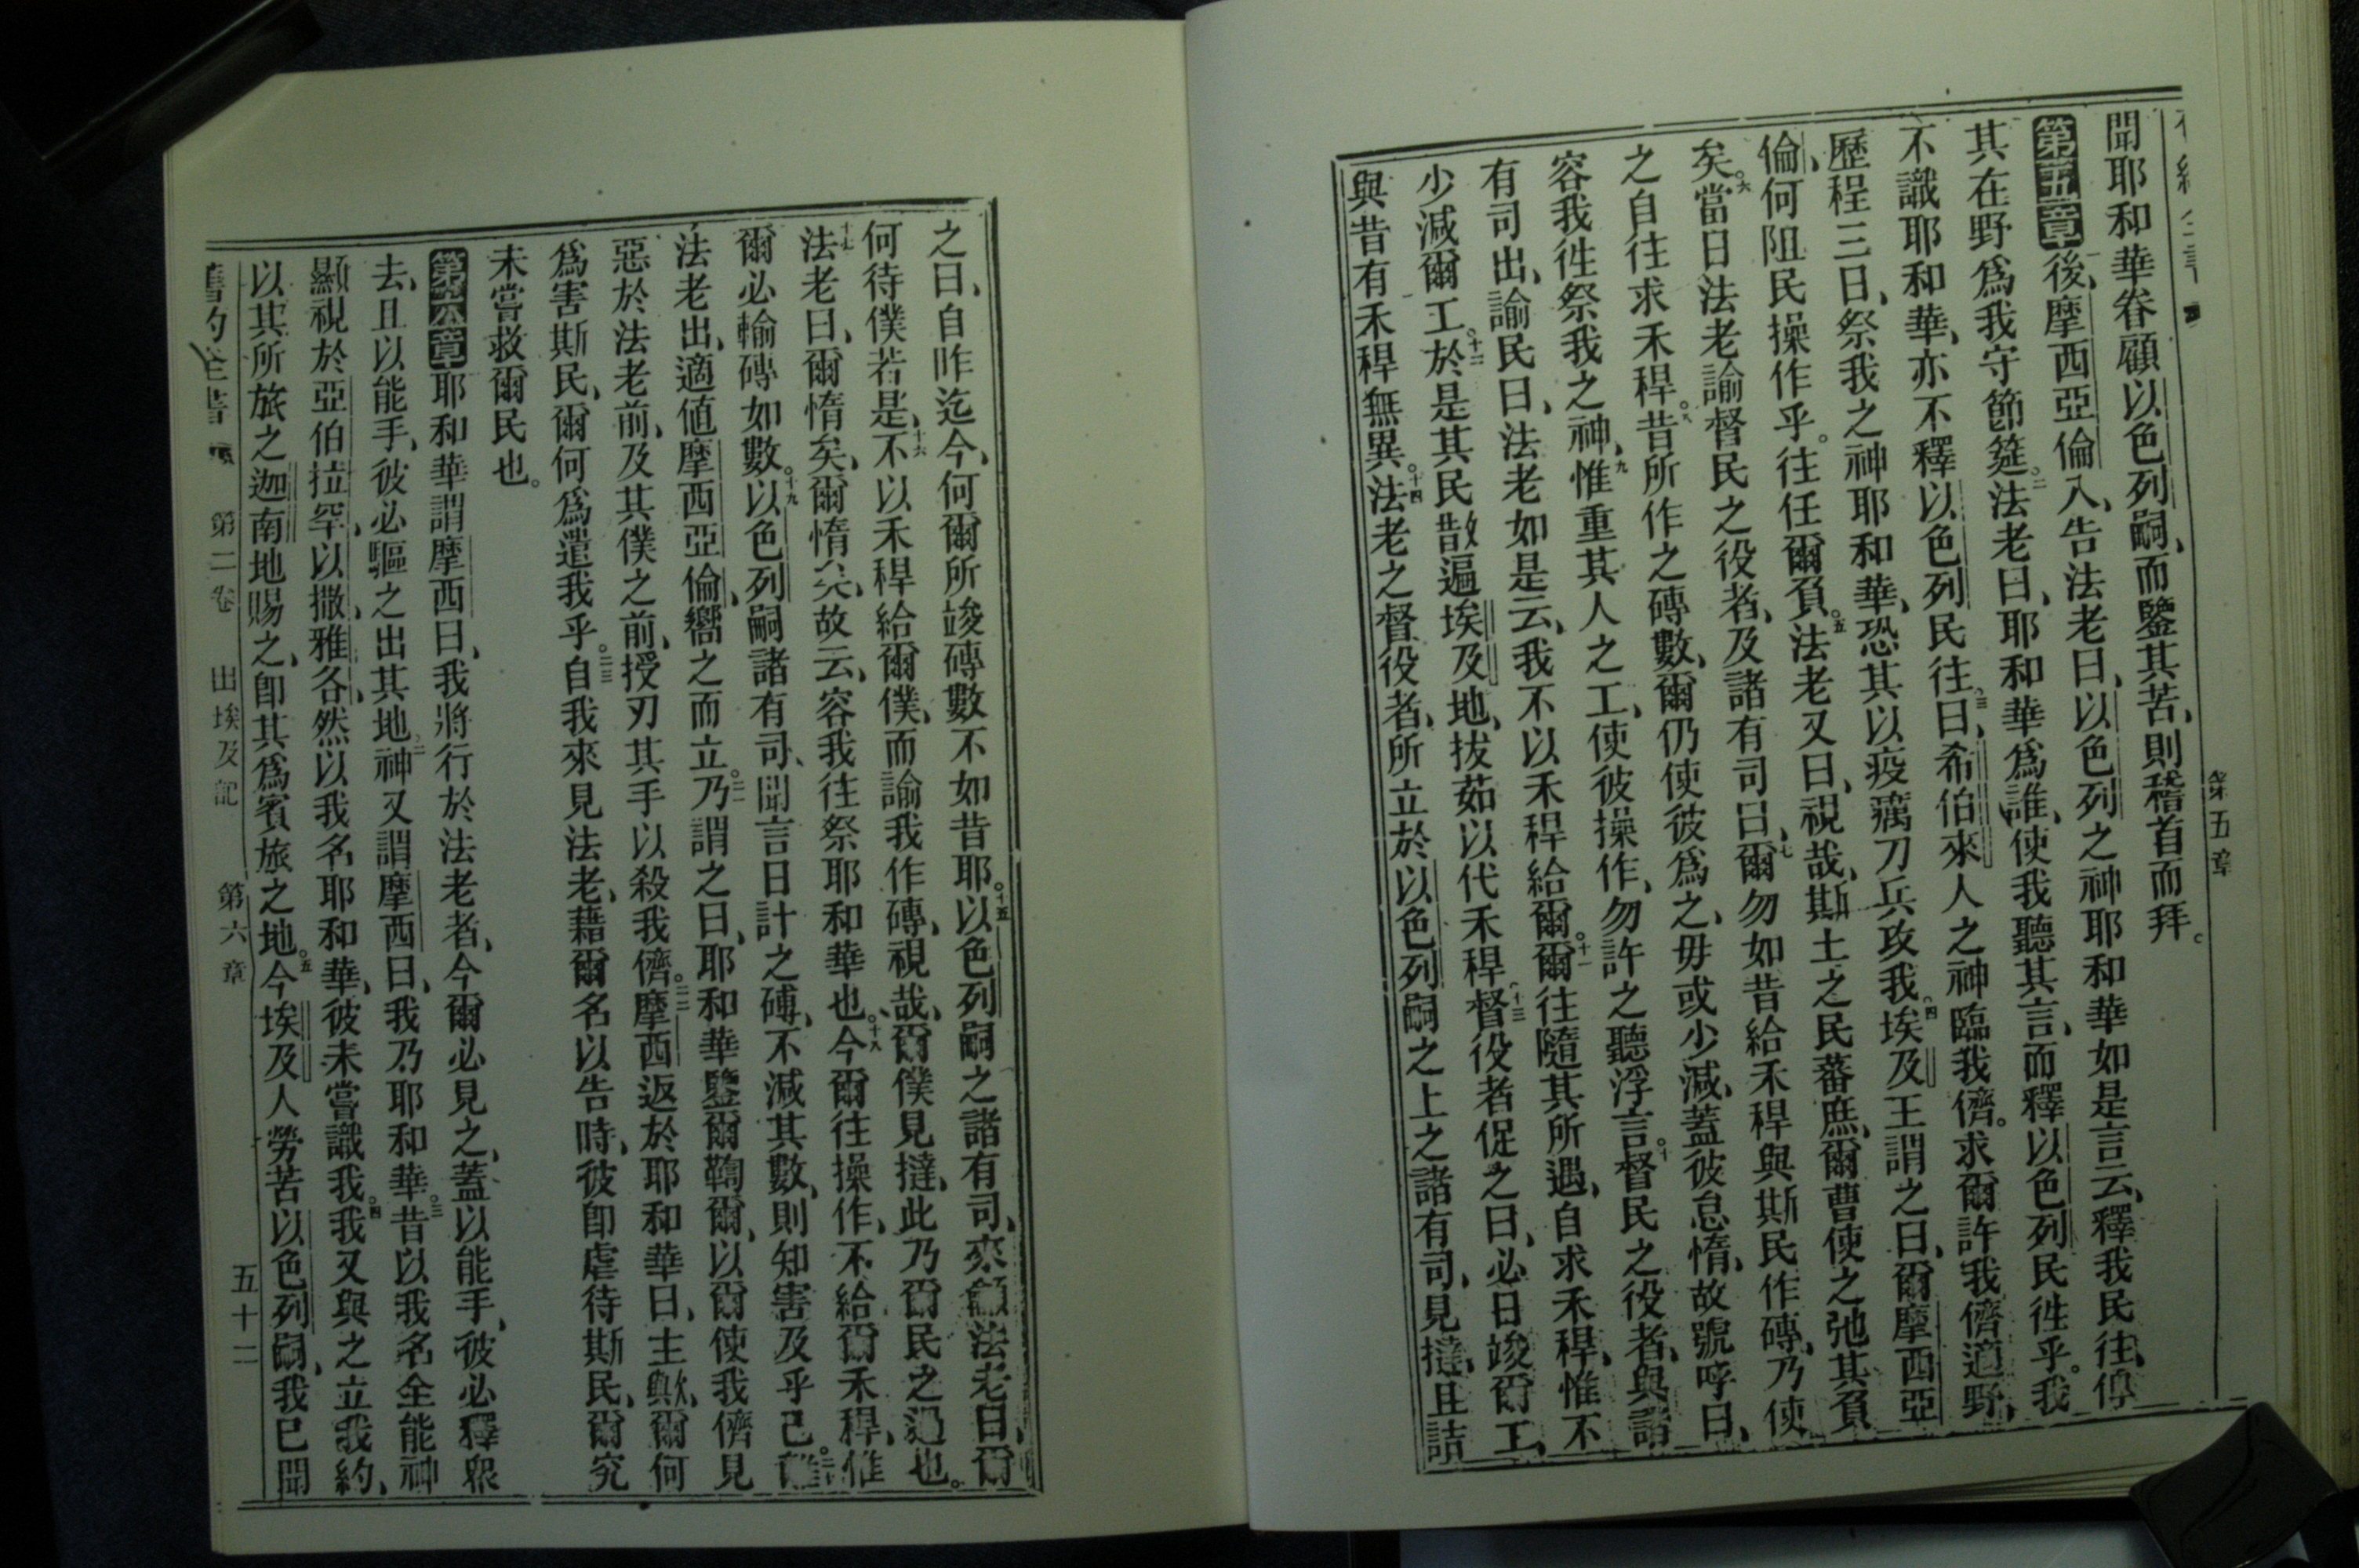 第五章
聞耶和華眷顧以色列嗣、而鑒其苦、則稽首而拜。
第五章 後、摩西亞倫入、告法老曰、以色列之神耶和華如是言云、釋我民往、俾
其在野爲我守節筵。二法老曰、耶和華爲誰、使我聽其言、而釋以色列民徃乎。我
不識耶和華、亦不釋以色列民往。三曰、希伯來人之神臨我儕。求爾許我儕適野、
歷程三日、祭我之神耶和華、恐其以疫癘刀兵攻我。四埃及王謂之曰、爾摩西亞
倫、何阻民操作乎。往任爾負。五法老又曰、視哉、斯土之民蕃庶、爾曹使之弛其負
矣。六當日法老諭督民之役者、及諸有司曰、七爾勿如昔給禾稈與斯民作磚、乃使
之自往求禾稈。八昔所作之磚數、爾仍使彼爲之、毋或少減、蓋彼怠惰、故號呼曰、
容我徃祭我之神、九惟重其人之工、使彼操作、勿許之聽浮言。十督民之役者、與諸
有司出、諭民曰、法老如是云、我不以禾稈給爾。十一爾往隨其所遇、自求禾稈、惟不
少減爾工。十二於是其民散遍埃及地、拔茹以代禾稈。十三督役者促之曰、必日竣爾工、
與昔有禾稈無異。十四法老之督役者、所立於以色列嗣之上之諸有司、見撻、且詰
之曰、自昨迄今、何爾所竣磚數不如昔耶。十五以色列嗣之諸有司、來籲法老曰、爾
何待僕若是、十六不以禾稈給爾僕、而諭我作磚、視哉、爾僕見撻、此乃爾民之過也。
十七法老曰、爾惰矣、爾惰矣、故云、容我往祭耶和華也。十八今爾往操作、不給爾禾稈、惟
爾必輸磚如數。十九以色列嗣諸有司、聞言日計之磚、不減其數、則知害及乎己。
法老出、適値摩西亞倫、嚮之而立。二一乃謂之曰、耶和華鑒爾鞫爾、以爾使我儕見
惡於法老前、及其僕之前、授刃其手以殺我儕。二二摩西返於耶和華曰、主歟、爾何
爲害斯民、爾何爲遣我乎。二三自我來見法老、藉爾名以告時、彼卽虐待斯民、爾究
未嘗救爾民也。
第六章 耶和華謂摩西曰、我將行於法老者、今爾必見之、蓋以能手、彼必釋衆
去、且以能手、彼必驅之出其地。二神又謂摩西曰、我乃耶和華。三昔以我名全能神
顯視於亞伯拉罕、以撒、雅各、然以我名耶和華、彼未嘗識我。四我又與之立我約、
以其所旅之迦南地賜之、卽其爲賓旅之地。五今埃及人勞苦以色列嗣、我已聞
舊約全書 第二卷 出埃及記 第六章 五十二